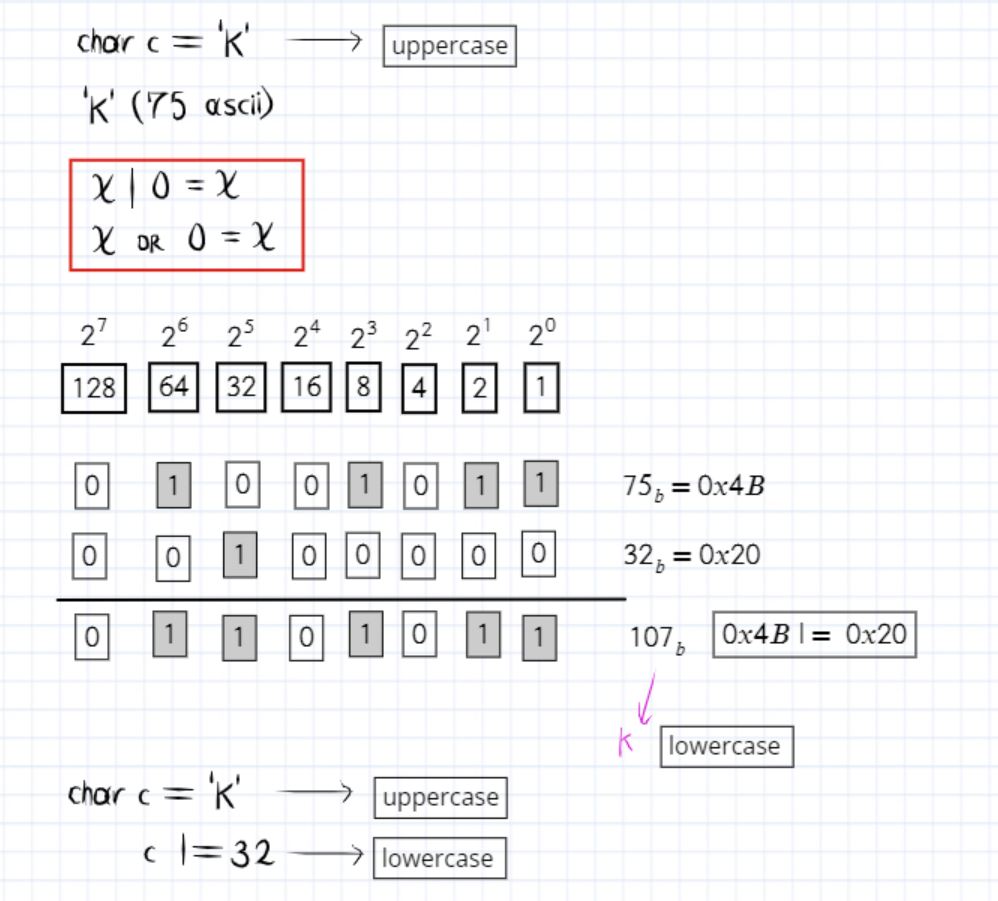 char c = 'K' → uppercase
'K' (75 ascii)
x | 0 = x
x OR 0 = x
2⁷ 2⁶ 2⁵ 2⁴ 2³ 2² 2¹ 2⁰
128 64 32 16 8 4 2 1
0 1 0 0 1 0 1 1 75_b = 0x4B
0 0 1 0 0 0 0 0 32_b = 0x20
0 1 1 0 1 0 1 1 107_b 0x4B |= 0x20
k lowercase
char c = 'K' → uppercase
c |= 32 → lowercase